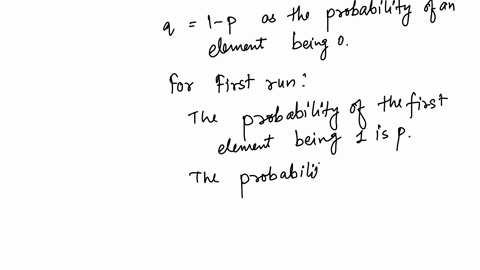 q = 1-p as the probability of an
element being 0.
For first run:
The probability of the first
element being 1 is p.
The probabilis